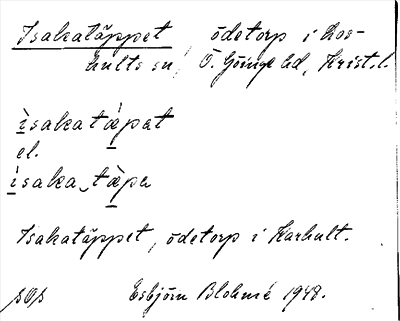 Isakatäppet ödetorp i Los-
hults sn, Ö. Göinge hd, Krist. l.
ìsakatæ̀pat
el.
ìsaka tæ̀pa
Isakatäppet, ödetorp i Karhult.
Esbjörn Blohmé 1948.